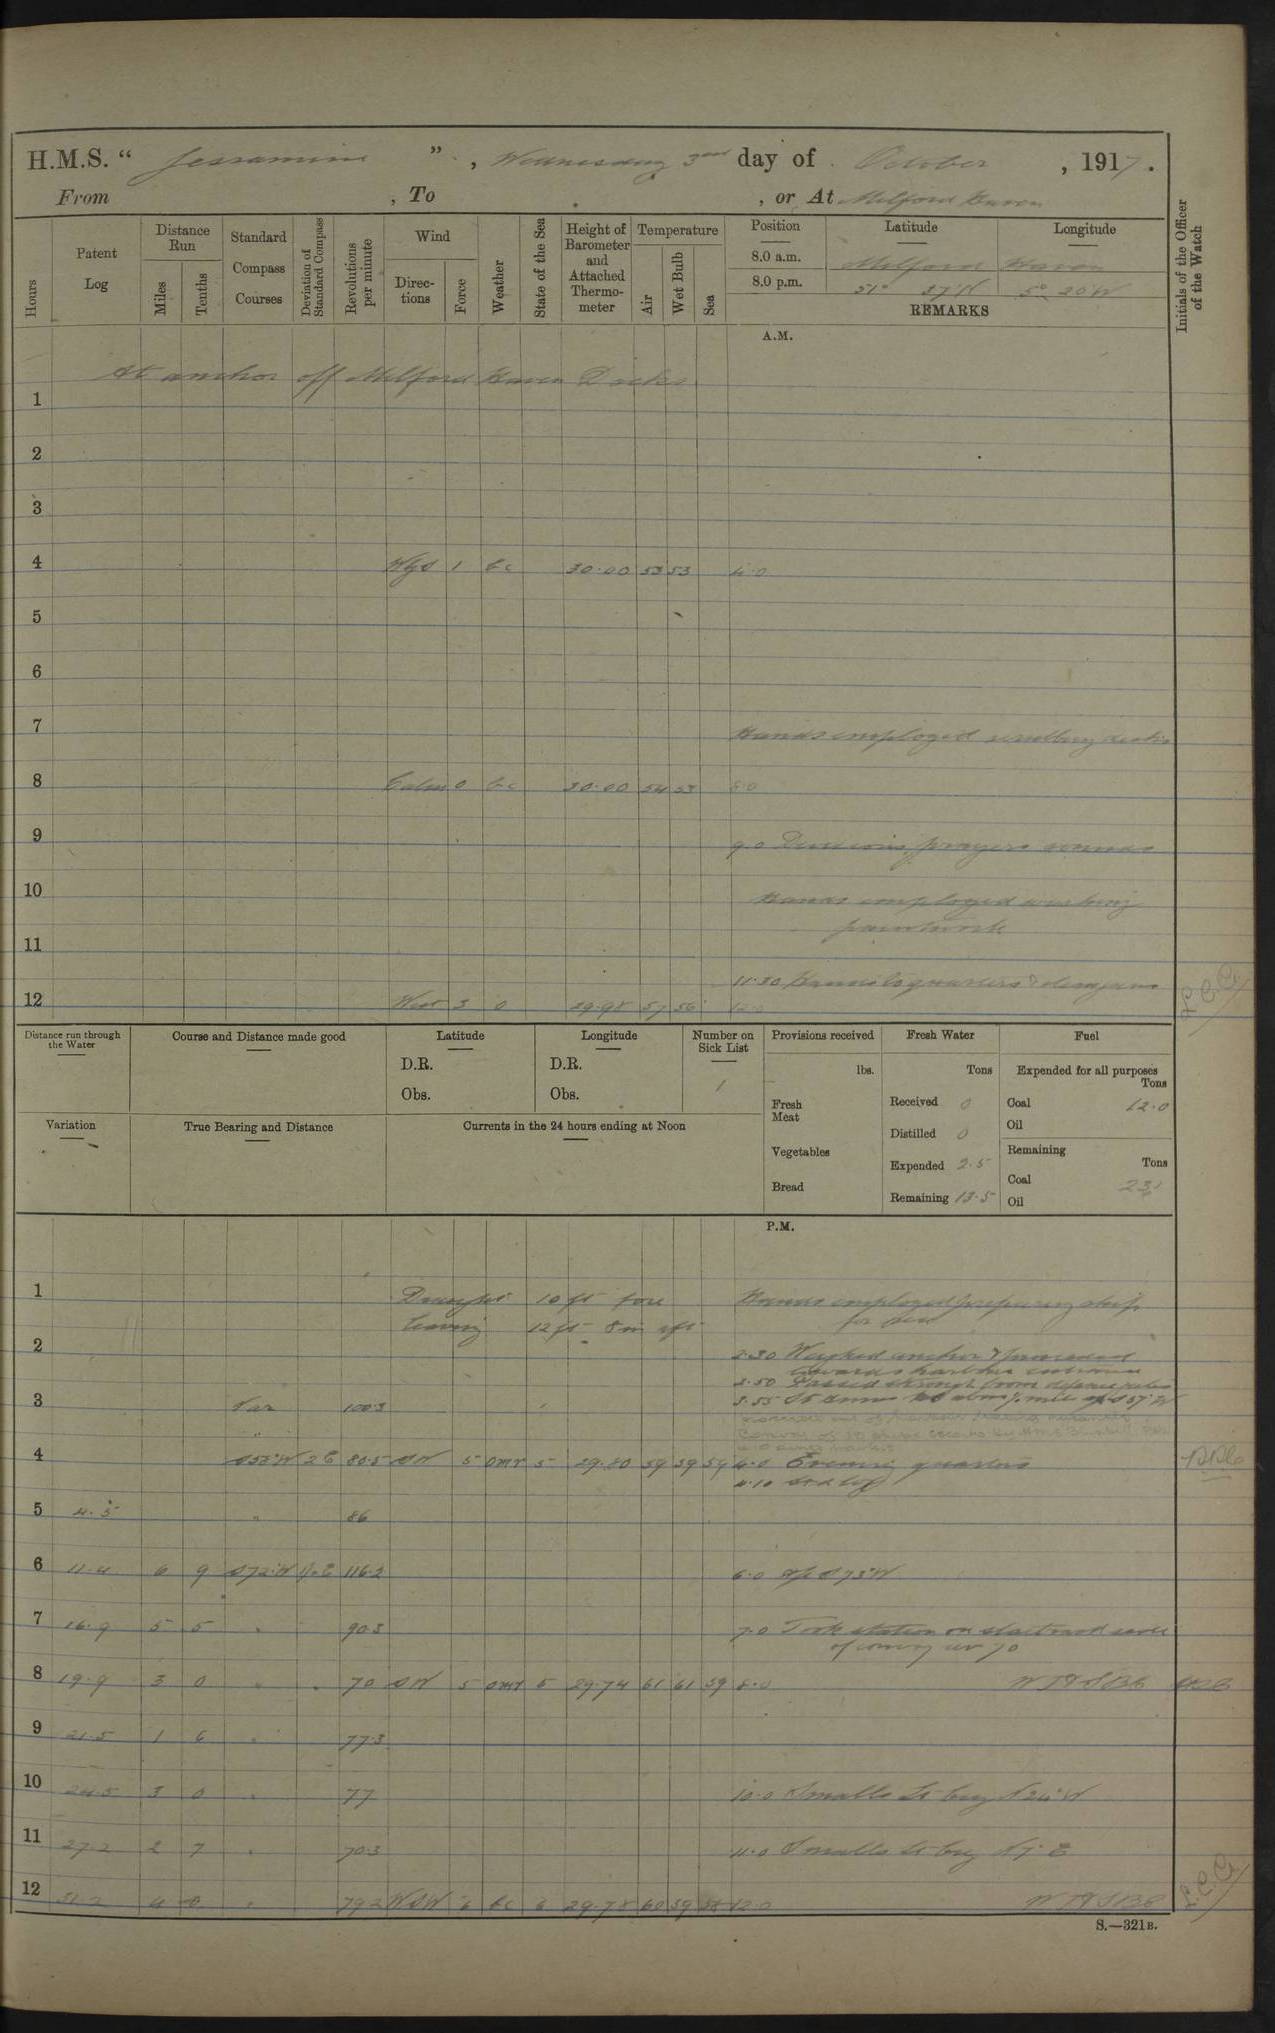 H.M.S. " Jessamine ", Wednesday 3rd day of October, 1917.
From , To , or At Milford Haven
Hours
Patent Log
Distance Run
Miles
Tenths
Standard Compass Courses
Deviation of Standard Compass
Revolutions per minute
Wind
Directions
Force
Weather
State of the Sea
Height of Barometer and Attached Thermometer
Temperature
Air
Wet Bulb
Sea
Position
Latitude
Longitude
8.0 a.m. Milford Haven
8.0 p.m. 51° 37'N 5° 20'W
REMARKS
Initials of the Officer of the Watch
A.M.
At anchor off Milford Haven Docks
1
2
3
4 1 bc 30.00 53 53 4.0
5
6
7 Hands employed decks
8 Calm 0 bc 30.00 54 53 8.0
9 9.0 Divisions, prayers
10 Hands employed washing
paintwork
11
11.30 Hands to quarters & clean guns
12 West 3 o 29.98 57 56 12.0
Distance run through the Water
Course and Distance made good
Latitude
D.R.
Obs.
Longitude
D.R.
Obs.
Number on Sick List
1
Provisions received
lbs.
Fresh Meat
Vegetables
Bread
Fresh Water
Tons
Received 0
Distilled 0
Expended 2.5
Remaining 13.5
Fuel
Expended for all purposes
Tons
Coal 12.0
Oil
Remaining
Tons
Coal 231
Oil
Variation
True Bearing and Distance
Currents in the 24 hours ending at Noon
P.M.
1 Draught 10 ft fore Hands employed preparing ship
leaving 12 ft 8 in aft for sea
2
2.30 Weighed anchor & proceeded
towards harbour entrance
3.50 Passed through boom defence
3 Var 100.3 3.55 St Anns Hd abm
4 S58°W 2E 80.5 SW 5 omr 5 29.80 59 59 59 4.0 Evening quarters
4.10 Set log
5 4.5 " 86
6 11.4 6 9 S72°W 116.2 6.0 a/c S73°W
7 16.9 5 5 " 90.3 7.0 Took station on starboard
of convoy
8 19.9 3 0 " " 70 SW 5 omr 5 29.74 61 61 59 8.0
9 21.5 1 6 " 77.3
10 24.5 3 0 " 77 10.0 Smalls Lt brg N24°W
11 27.2 2 7 " 70.3 11.0 Smalls Lt brg N7°E
12 31.2 4 0 " 79.2 WSW 6 bc 6 29.78 60 59 58 12.0
S.—321B.